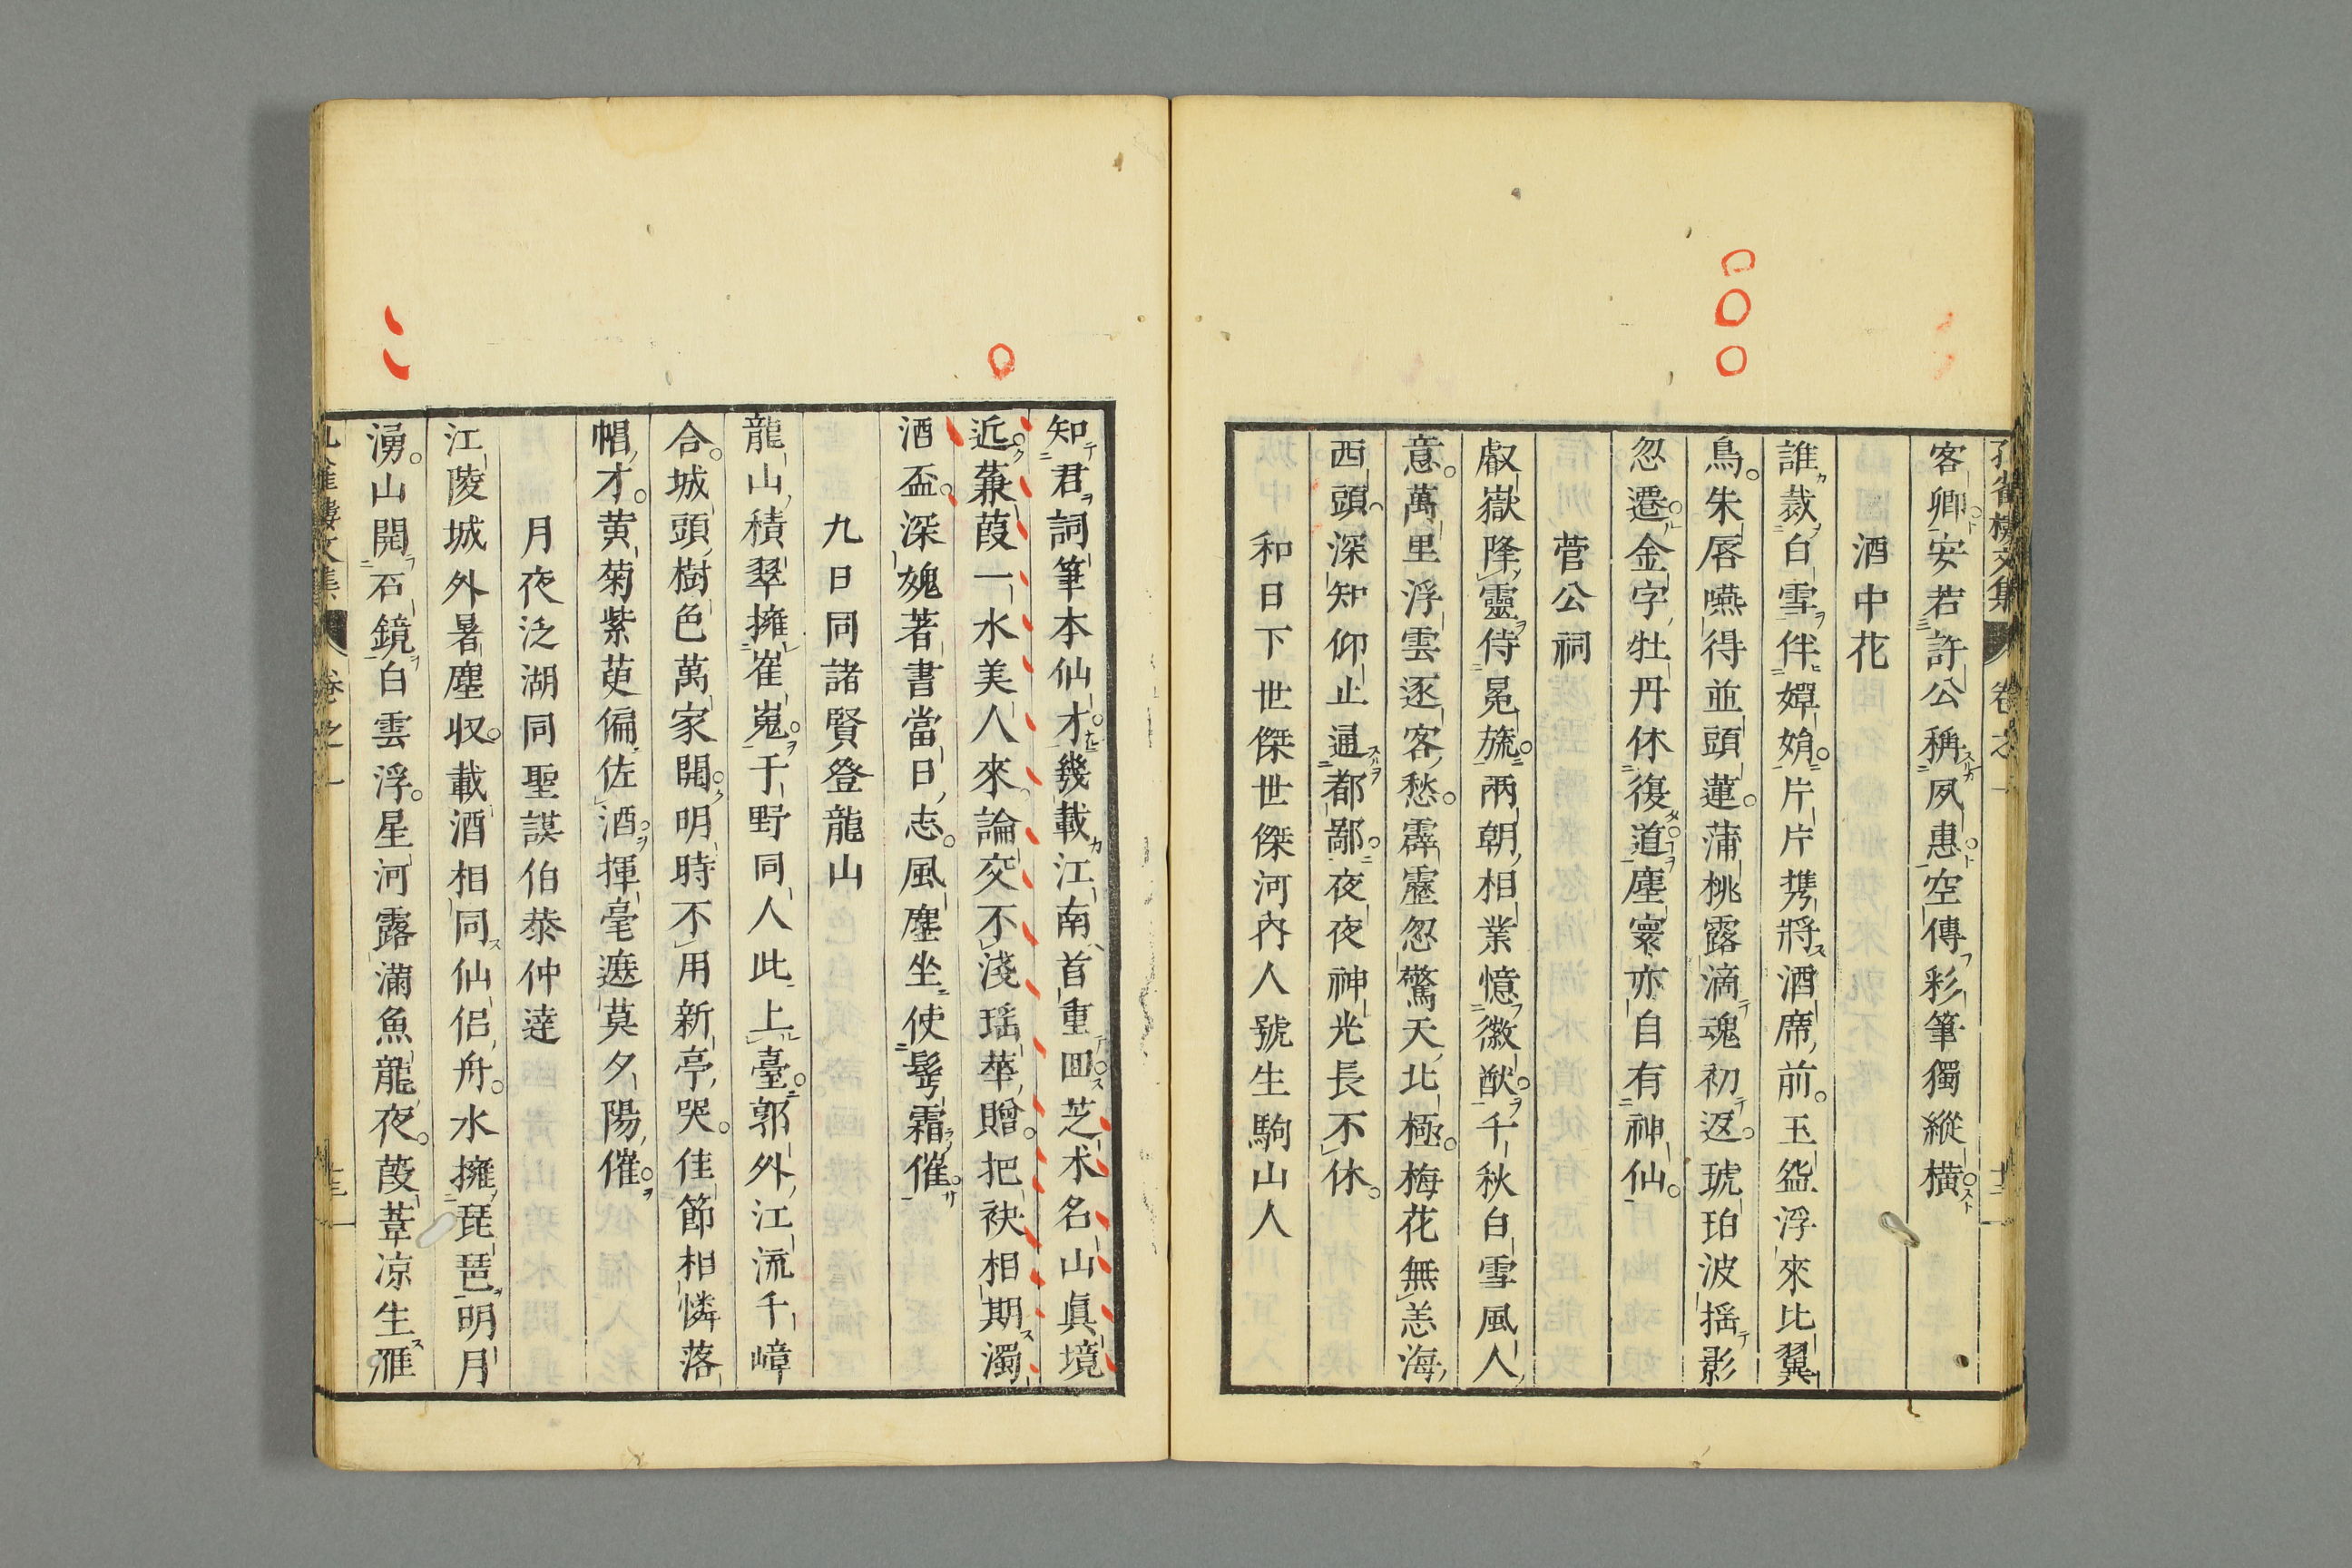 孔雀樓文集 卷之一 十二
客卿安若許公稱夙惠空傳彩筆獨縱橫
酒中花
誰裁白雪伴嬋娟片片携將酒席前玉盌浮來比翼
鳥朱唇嚥得並頭蓮蒲桃露滴魂初返琥珀波揺影
忽遷金字牡丹休復道塵寰亦自有神仙
菅公祠
叡嶽降靈侍冕旒兩朝相業憶徽猷千秋白雪風人
意萬里浮雲逐客愁霹靂忽驚天北極梅花無恙海
西頭深知仰止通都鄙夜夜神光長不休
和日下世傑世傑河內人號生駒山人
知君詞筆本仙才幾載江南首重回芝朮名山眞境
近蒹葭一水美人來論交不淺瑶華贈把袂相期濁
酒盃深媿著書當日志風塵坐使鬂霜催
九日同諸賢登龍山
龍山積翠擁崔嵬于野同人此上臺郭外江流千嶂
合城頭樹色萬家開明時不用新亭哭佳節相憐落
帽才黄菊紫萸偏佐酒揮毫遮莫夕陽催
月夜泛湖同聖謨伯恭仲達
江陵城外暑塵収載酒相同仙侶舟水擁琵琶明月
湧山開石鏡白雲浮星河露滿魚龍夜葭葦凉生雁
孔雀樓文集 卷之一